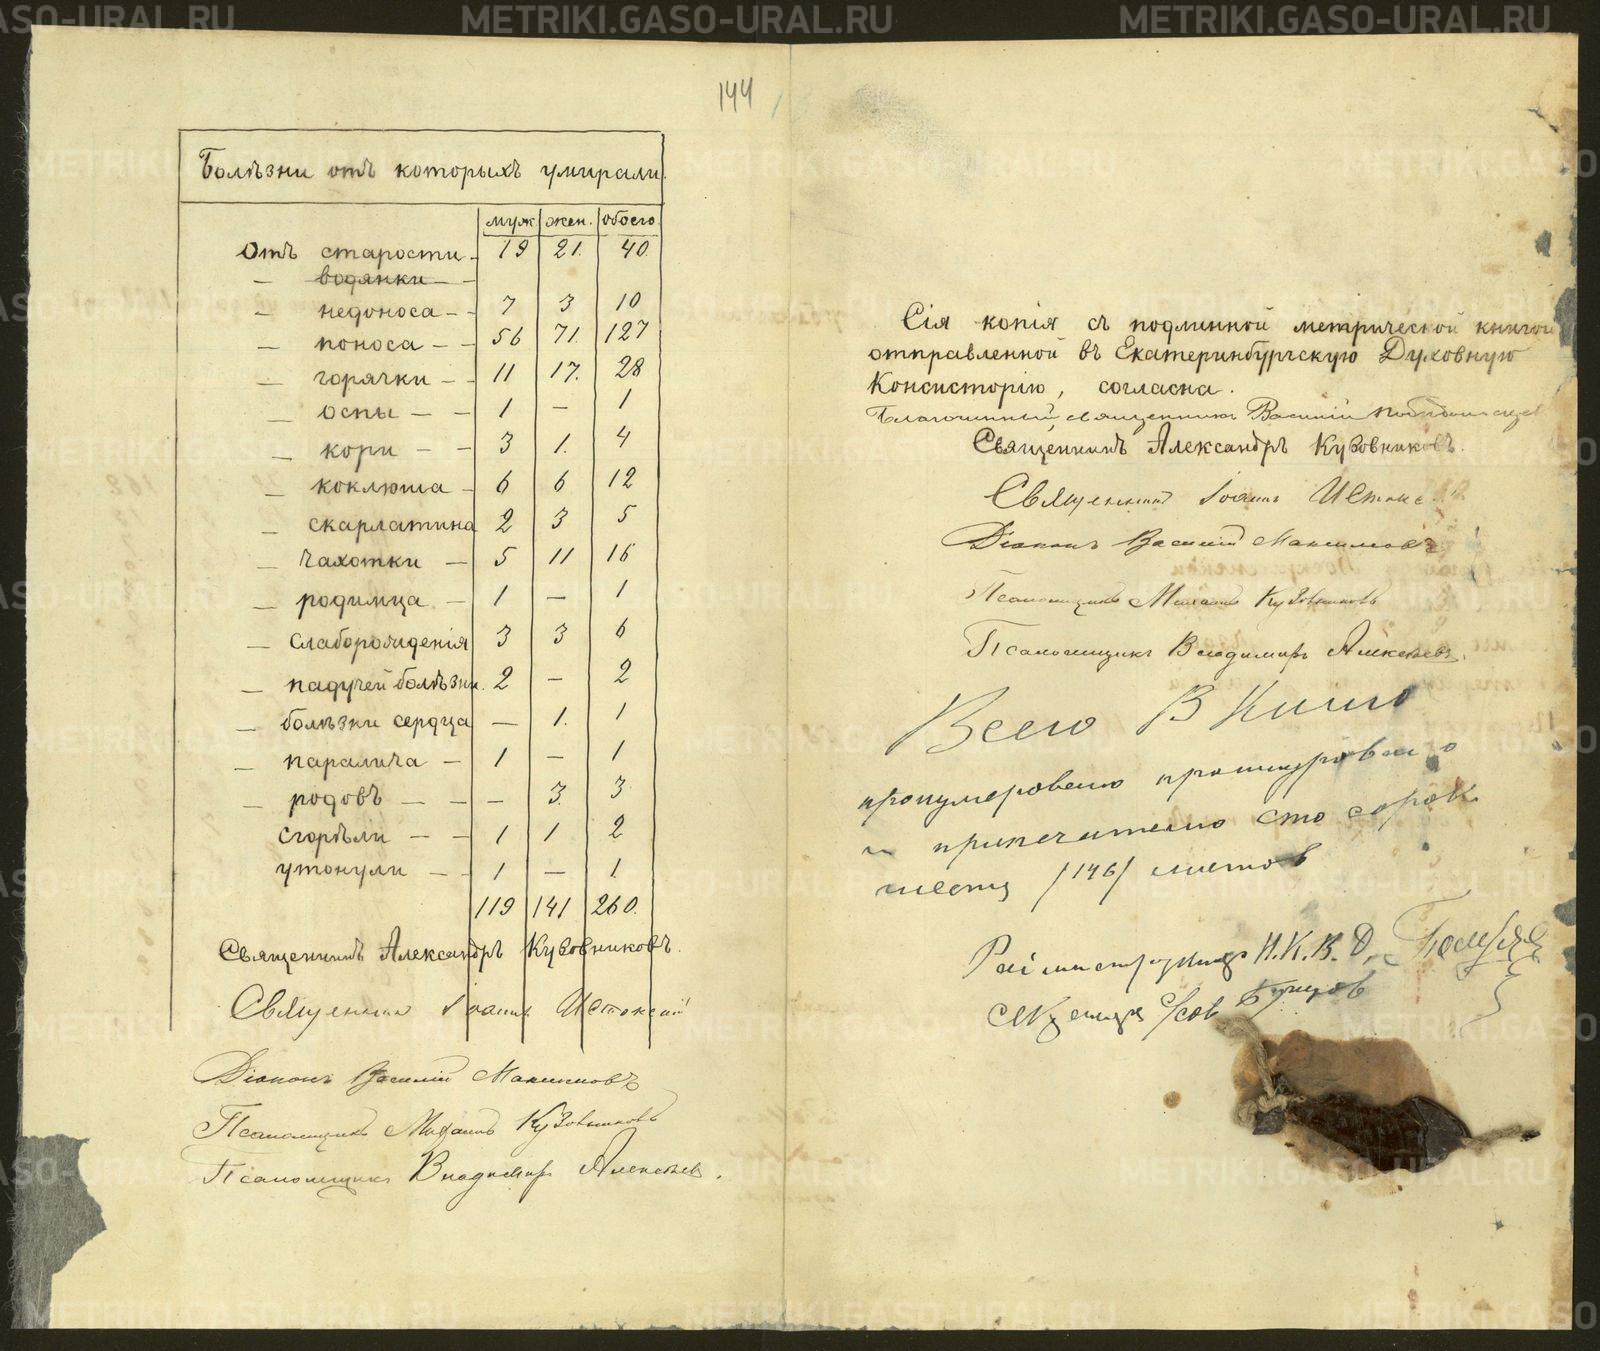 144
Болѣзни отъ которыхъ умирали.
муж жен. обоего
Отъ старости - 19 21. 40
— водянки — -
— недоноса - - 7 3 10
— поноса - - 56 71. 127
— горячки - - 11 17. 28
— оспы — - 1 — 1
— кори - - 3 1. 4
— коклюша - 6 6 12
— скарлатина 2 3 5
— чахотки — 5 11 16
— родимца - 1 — 1
— слаборожденія 3 3 6
— падучей болѣзни. 2 — 2
— болѣзни сердца — 1. 1
— паралича — 1 — 1
— родовъ — — — 3. 3
сгорѣли — — 1 1 2
утонули — — 1 — 1
119 141 260.
Священникъ Александръ Кузовниковъ.
Священникъ Іоаннъ Истокскій
Діаконъ Василій Максимовъ
Псаломщикъ Михаилъ Кузовниковъ
Псаломщикъ Владимиръ Алексѣевъ.
Сія копія съ подлинной метрической книгой
отправленной въ Екатеринбургскую Духовную
Консисторію, согласна.
Благочинный, священникъ Василій
Священникъ Александръ Кузовниковъ.
Священникъ Іоаннъ Исток
Діаконъ Василій Максимовъ
Псаломщикъ Михаилъ Кузовниковъ
Псаломщикъ Владимиръ Алексѣевъ.
Всего В Книге
пронумеровано прошнуровано
и припечатано сто сорок
шесть /146/ листов
Н.К.В.Д.
с/сов
METRIKI.GASO-URAL.RU